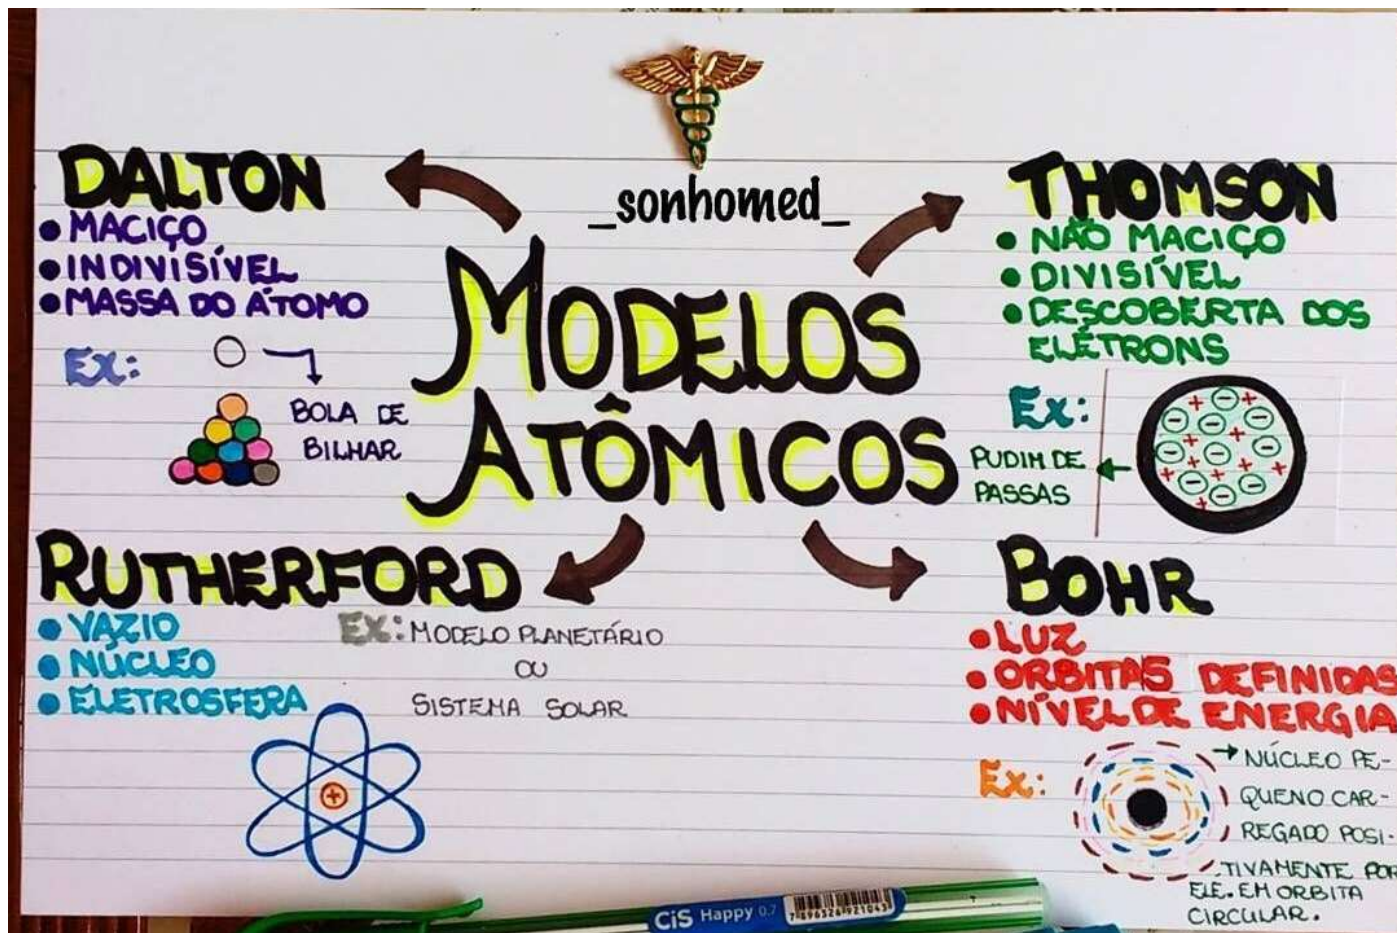 _sonhomed_
MODELOS
ATÔMICOS
DALTON
• MACIÇO
• INDIVISÍVEL
• MASSA DO ÁTOMO
EX:
BOLA DE
BILHAR
THOMSON
• NÃO MACIÇO
• DIVISÍVEL
• DESCOBERTA DOS
ELÉTRONS
EX:
PUDIM DE
PASSAS
RUTHERFORD
• VAZIO
• NÚCLEO
• ELETROSFERA
EX: MODELO PLANETÁRIO
OU
SISTEMA SOLAR
BOHR
• LUZ
• ORBITAS DEFINIDAS
• NÍVEL DE ENERGIA
EX:
NÚCLEO PE-
QUENO CAR-
REGADO POSI-
TIVAMENTE POR
ELE. EM ORBITA
CIRCULAR.
CiS Happy 0.7
7 896324 921043